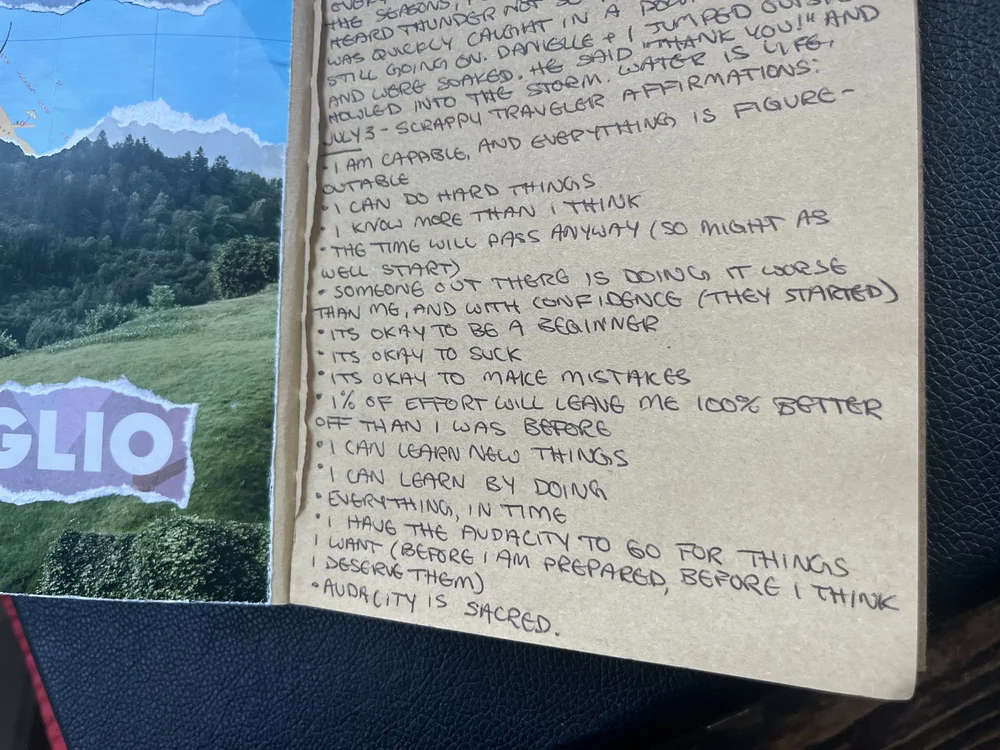 GLIO
THE SEASONS,
HEARD THUNDER NOT
WAS QUICKLY CAUGHT IN A
STILL GOING ON. DANIELLE + I JUMPED
AND WERE SOAKED. HE SAID "THANK YOU!" AND
HOWLED INTO THE STORM. WATER IS LIFE.
JULY 3 - SCRAPPY TRAVELER AFFIRMATIONS:
• I AM CAPABLE, AND EVERYTHING IS FIGURE-
OUTABLE
• I CAN DO HARD THINGS
• I KNOW MORE THAN I THINK
• THE TIME WILL PASS ANYWAY (SO MIGHT AS
WELL START)
• SOMEONE OUT THERE IS DOING IT WORSE
THAN ME, AND WITH CONFIDENCE (THEY STARTED)
• ITS OKAY TO BE A BEGINNER
• ITS OKAY TO SUCK
• ITS OKAY TO MAKE MISTAKES
• 1% OF EFFORT WILL LEAVE ME 100% BETTER
OFF THAN I WAS BEFORE
• I CAN LEARN NEW THINGS
• I CAN LEARN BY DOING
• EVERYTHING, IN TIME
• I HAVE THE AUDACITY TO GO FOR THINGS
I WANT (BEFORE I AM PREPARED, BEFORE I THINK
I DESERVE THEM)
• AUDACITY IS SACRED.